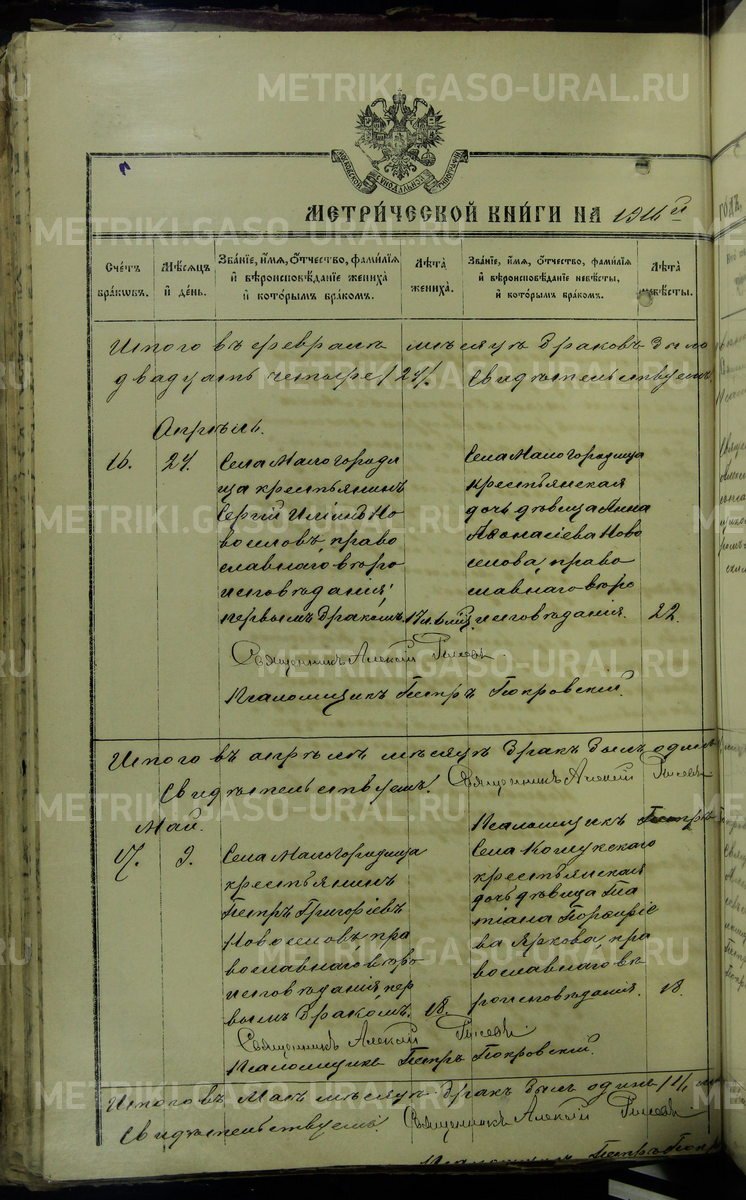 METRIKI.GASO-URAL.RU
МЕТРИ́ЧЕСКОЙ КНИ́ГИ НА 1916й
Сче́тъ бра́кѡвъ.
Мѣ́сяцъ и҆ де́нь.
Зва́нїе, и҆́мѧ, ѻ҆́тчество, фамѝлїѧ и҆ вѣроисповѣ́данїе жениха̀ и҆ кото́рымъ бра́комъ.
Лѣ́та жениха̀.
Зва́нїе, и҆́мѧ, ѻ҆́тчество, фамѝлїѧ и҆ вѣроисповѣ́данїе невѣ́сты, и҆ кото́рымъ бра́комъ.
Лѣ́та невѣ́сты.
Итого въ февралѣ мѣсяцѣ браковъ было
двадцать четыре /24/. Свидѣтельствуемъ
Апрѣль.
16. 24. Села Малогородищ
ща крестьянинъ
Сергій Но
воселовъ, право
славнаго вѣро
исповѣданія,
первымъ бракомъ.
Села Малогородища
крестьянская
дочь дѣвица Анна
Аѳанасіева Ново
селова, право
славнаго вѣро
исповѣданія. 22.
Священникъ Алексій
Псаломщикъ Петръ Покровскій.
Итого въ апрѣлѣ мѣсяцѣ бракъ былъ одинъ
Свидѣтельствуемъ: Священникъ Алексій
Псаломщикъ Петръ
Май.
17. 9. Села Малогородища
крестьянинъ
Петръ Григоріевъ
Новоселовъ, пра
вославнаго вѣро
исповѣданія, пер
вымъ бракомъ. 18.
Села Кошукскаго
крестьянская
дочь дѣвица Та
тіана Порфиріе
ва Яркова, пра
вославнаго вѣ
роисповѣданія. 18.
Священникъ Алексій
Псаломщикъ Петръ Покровскій.
Итого въ Маѣ мѣсяцѣ бракъ былъ одинъ /1/
Свидѣтельствуемъ: Священникъ Алексій
Псаломщикъ Петръ